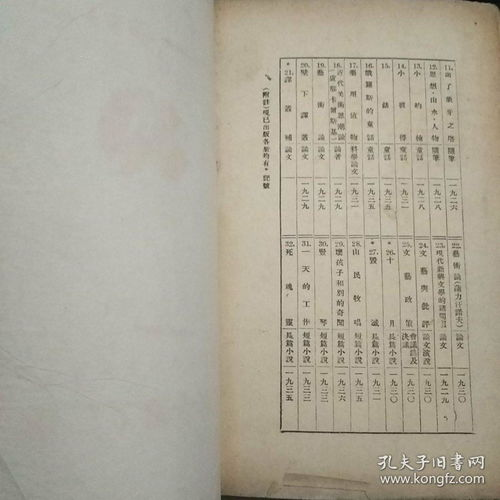 11. 出了象牙之塔 隨筆 一九二六
12. 思想·山水·人物 隨筆 一九二八
13. 小約翰 童話 一九二八
14. 小彼得 童話 一九二九
15. 錶 童話 一九三五
16. 俄羅斯的童話 童話 一九三五
17. 藝用植物 科學論文 一九三一
18. 近代美術思潮論 論著 一九二九
19. 藝術論(盧那卡爾斯基) 論文 一九二九
20. 壁下譯叢 論文 一九二九
*21. 譯叢補 論文
22. 藝術論(蒲力汗諾夫) 論文 一九三〇
23. 現代新興文學的諸問題 論文 一九二九
24. 文藝與批評 論文演說 一九三〇
25. 文藝政策 會議錄及決議 一九三〇
*26. 十月 長篇小說 一九三〇
*27. 毀滅 長篇小說 一九三一
28. 山民牧唱 短篇小說
29. 壞孩子和別的奇聞 短篇小說 一九三六
30. 豎琴 短篇小說 一九三三
31. 一天的工作 短篇小說 一九三三
32. 死魂靈 長篇小說 一九三五
(附註)現已出版各册均有*記號
孔夫子旧书网
www.kongfz.com